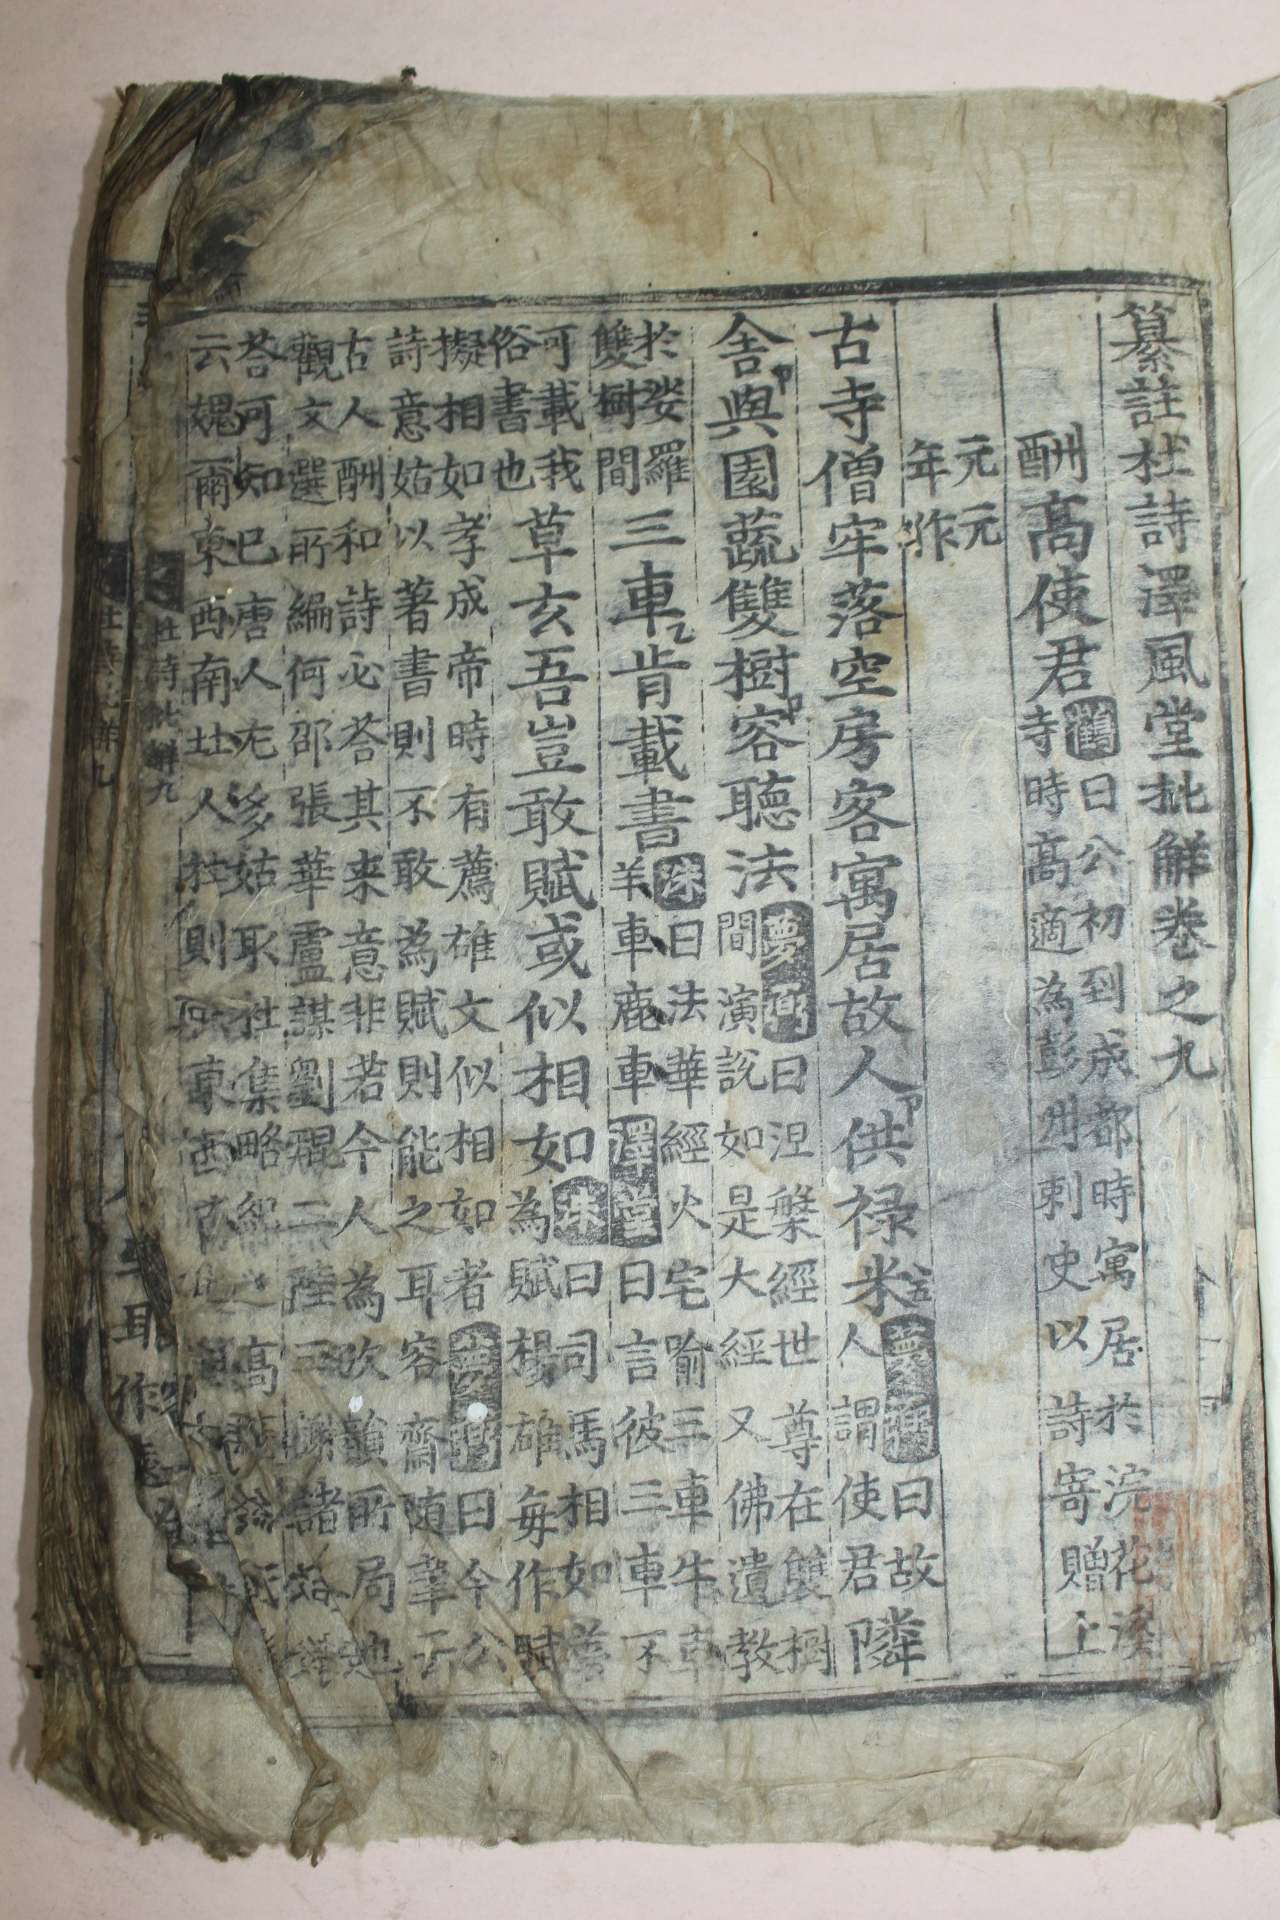 纂註杜詩澤風堂批解卷之九
酬高使君
鶴曰公初到成都時寓居於浣花溪
寺時高適為彭州刺史以詩寄贈上
元元
年作
古寺僧牢落空房客寓居故人供禄米
夢弼曰故
人謂使君
隣
舍與園蔬雙樹容聽法
夢弼曰涅槃經世尊在雙樹
間演說如是大經又佛遺教
於娑羅
雙樹間
三車肯載書
洙曰法華經火宅喻三車牛車
羊車鹿車澤堂曰言彼三車不
可載我
俗書也
草玄吾豈敢賦或似相如
洙曰司馬相如善
為賦楊雄每作賦
擬相如孝成帝時有薦雄文似相如者夢弼曰今公
詩意姑以著書則不敢為賦則能之耳容齋随筆云
古人酬和詩必荅其来意非若今人為次韻所局也
觀文選所編何邵張華盧諶劉琨二陸三謝諸
荅可知巳唐人尤多姑取杜集略紀之高
云媿爾東西南北人杜則云東西
杜詩批解九